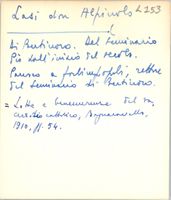 Lasi don Alpinolo L253
di Bertinoro. Del Seminario
Pio dall'inizio del secolo.
Parroco a Forlimpopoli, rettore
del Seminario di Bertinoro.
= Lotte e benemerenze del
cattolico, Bagnacavallo,
1910, pp. 54.